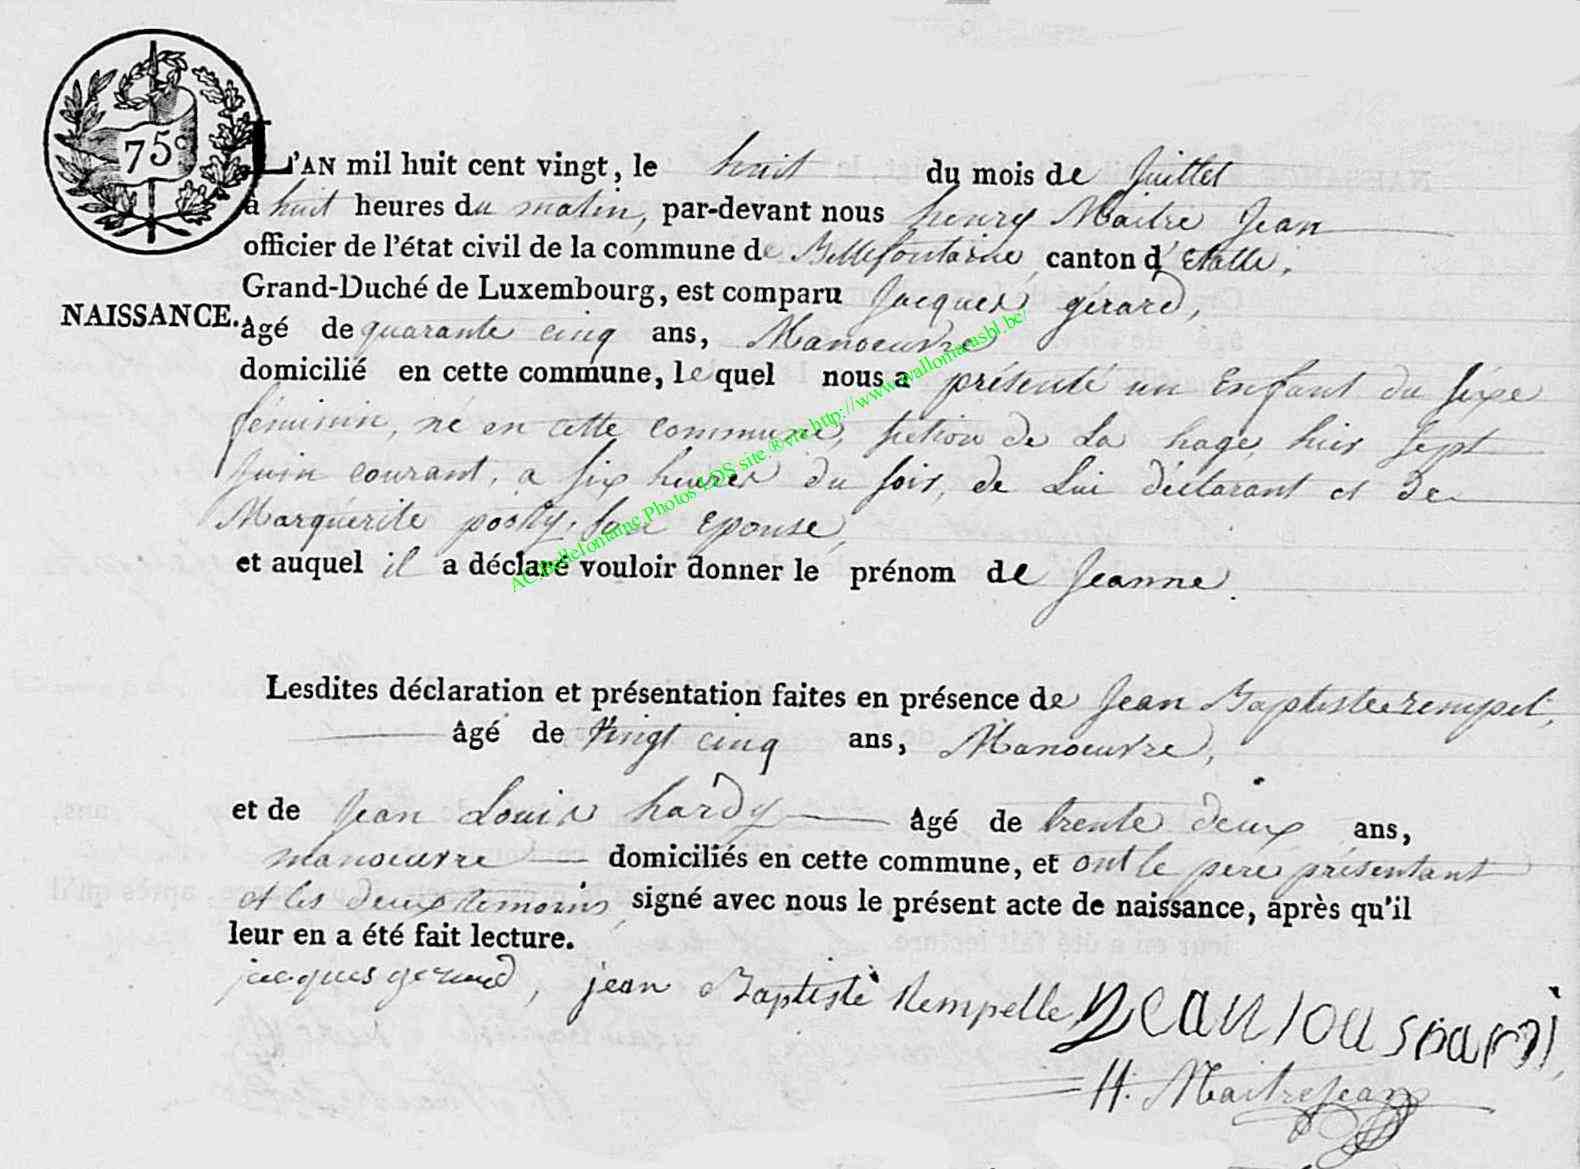 75c
L'AN mil huit cent vingt, le huit du mois de Juillet
à huit heures du matin, par-devant nous henry Maitre Jean
officier de l'état civil de la commune de Bellefontaine canton d'Etalle,
Grand-Duché de Luxembourg, est comparu Jacques gérard,
NAISSANCE. âgé de quarante cinq ans, Manoeuvre
domicilié en cette commune, lequel nous a présenté un Enfant du sexe
féminin, né en cette commune, section de La hage, hier sept
Juin courant, a six heures du soir, de Lui déclarant et De
Marguérite posty, sa Epouse,
et auquel il a déclaré vouloir donner le prénom de Jeanne.
AC Bellefontaine Photos LDS site ® via http://www.wallomarusbl.be/
Lesdites déclaration et présentation faites en présence de Jean Baptiste rempel,
âgé de vingt cinq ans, Manoeuvre,
et de Jean Louis hardy âgé de trente deux ans,
manoeuvre domiciliés en cette commune, et ont le père présentant
et les deux temoins signé avec nous le présent acte de naissance, après qu'il
leur en a été fait lecture.
jacques gerard, jean Baptiste Rempelle
H. MaitreJean